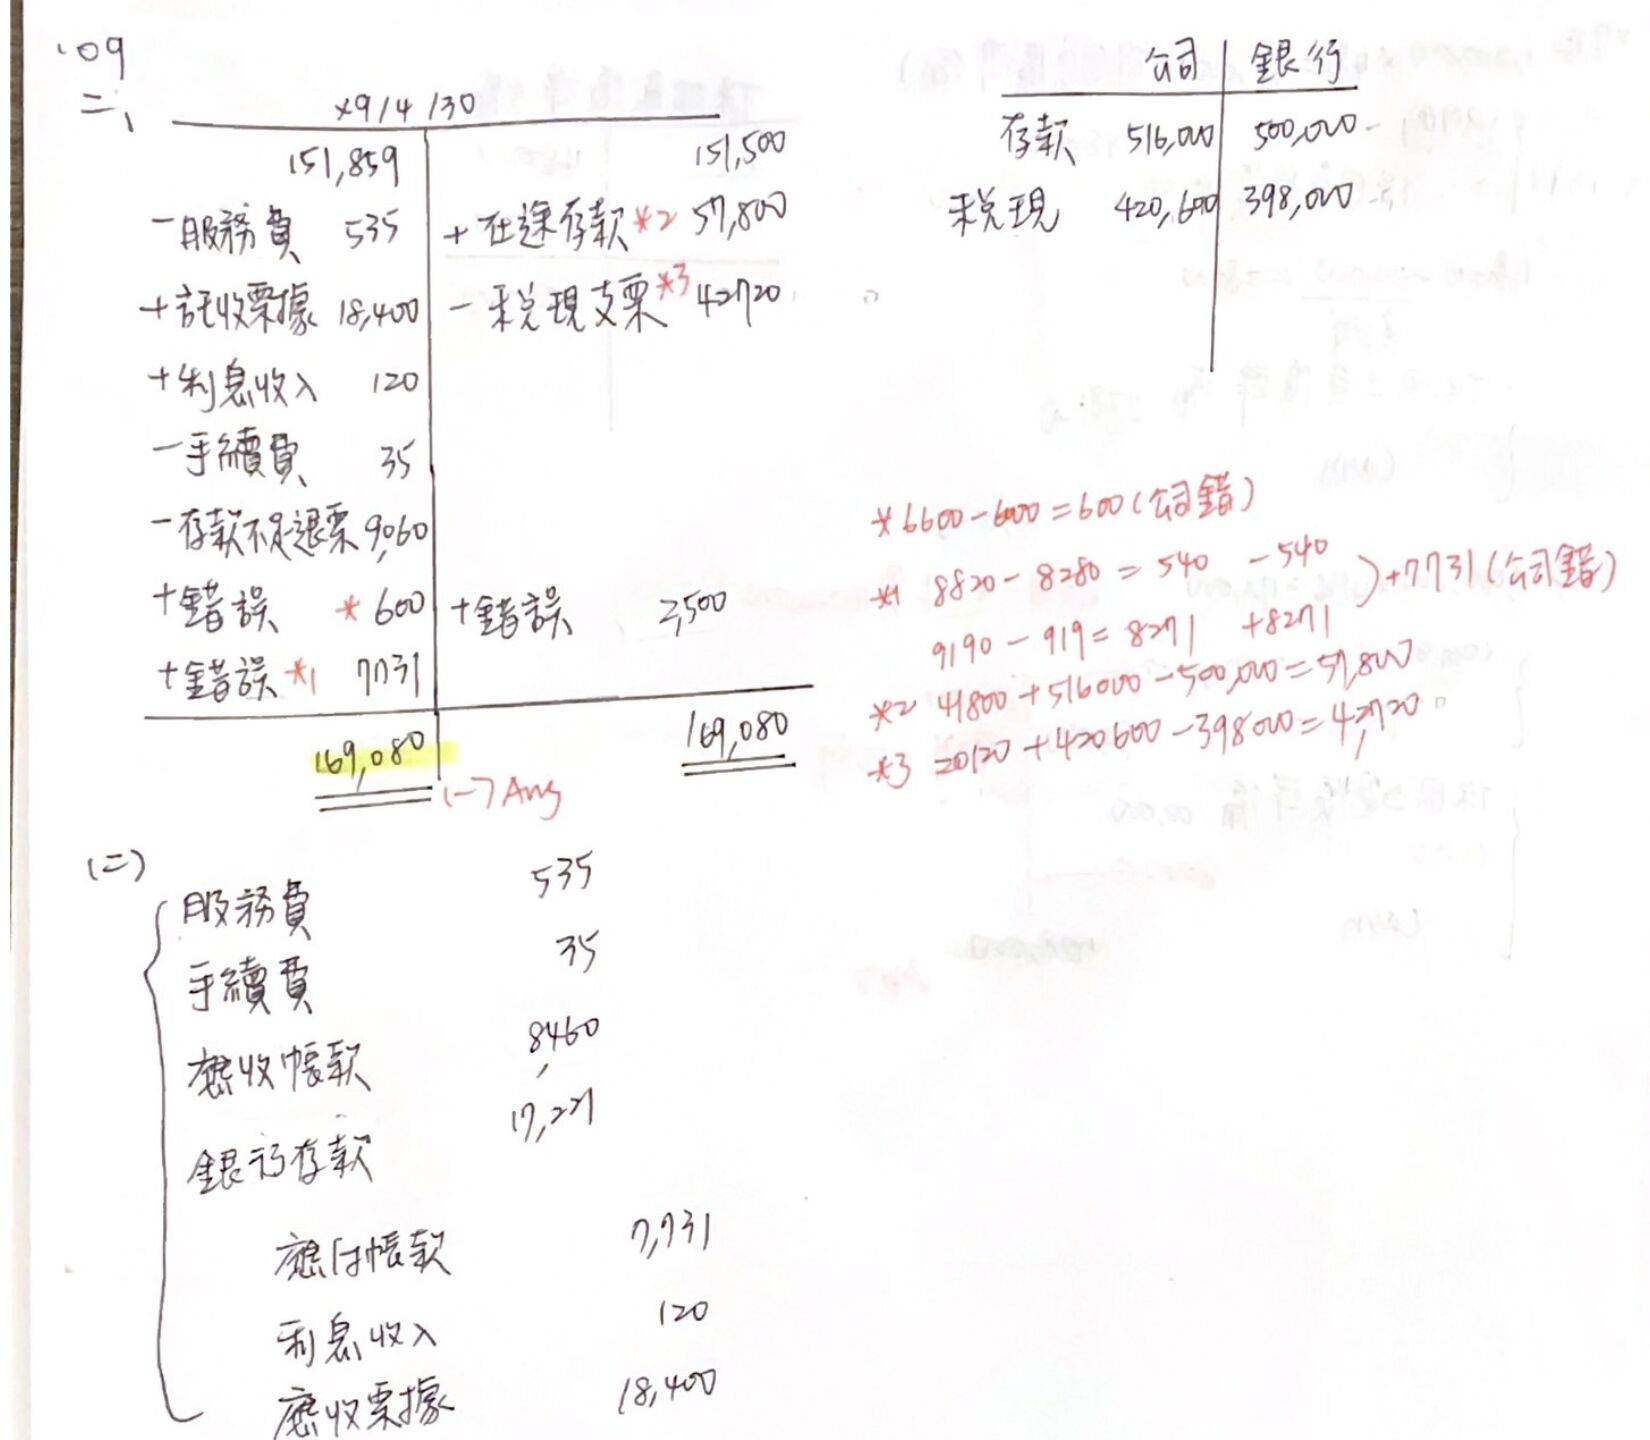 109
二、
×9/4/30
151,859 151,500
－服務費 535 ＋在途存款*2 57,800
＋託收票據 18,400 －未兌現支票*3 42720
＋利息收入 120
－手續費 35
－存款不足退票 9,060
＋錯誤 * 600 ＋錯誤 2,500
＋錯誤*1 7731
169,080 169,080
(一) Ans
公司 銀行
存款 516,000 500,000
未兌現 420,600 398,000
* 6600－6000＝600(公司錯)
*1 8820－8280＝540 －540
9190－919＝8271 ＋8271 )＋7731(公司錯)
*2 41800＋516000－500,000＝57,800
*3 20120＋420600－398000＝42,720
(二)
服務費 535
手續費 35
應收帳款 8,460
銀行存款 17,221
應付帳款 7,731
利息收入 120
應收票據 18,400